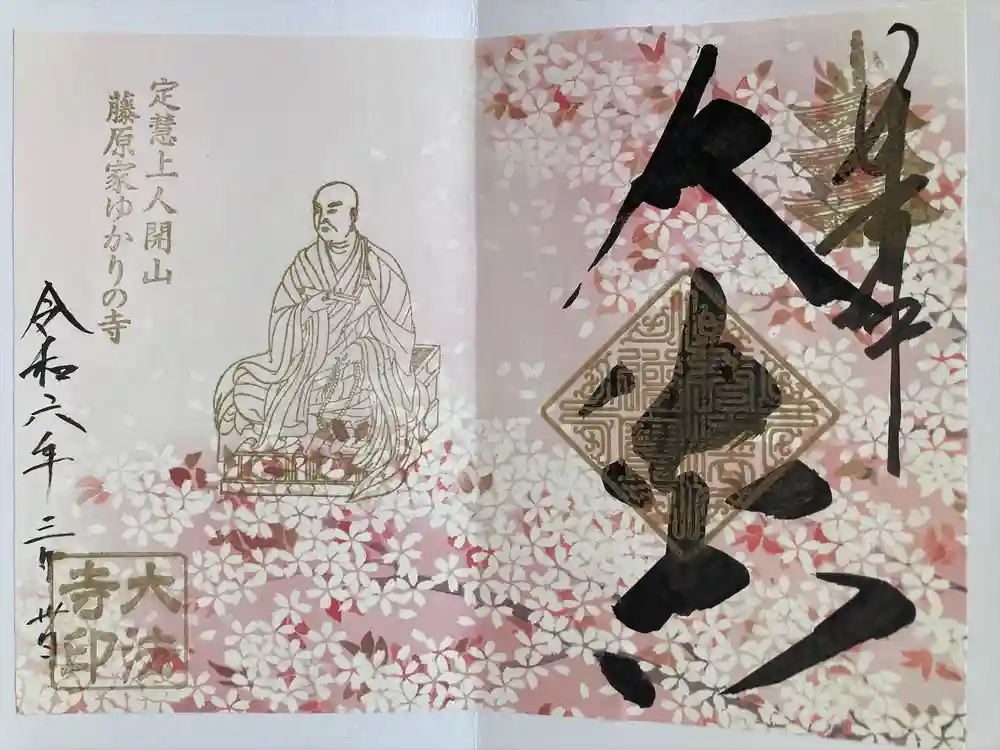 奉拝
定慧上人開山
藤原家ゆかりの寺
令和六年三月卅日
大法
寺印